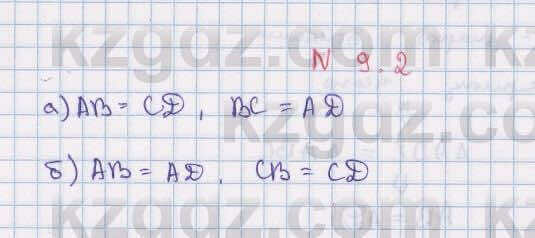 kzgdz.com
N 9.2
а) AB = CD, BC = AD
б) AB = AD. CB = CD
kzgdz.com
kzgdz.com